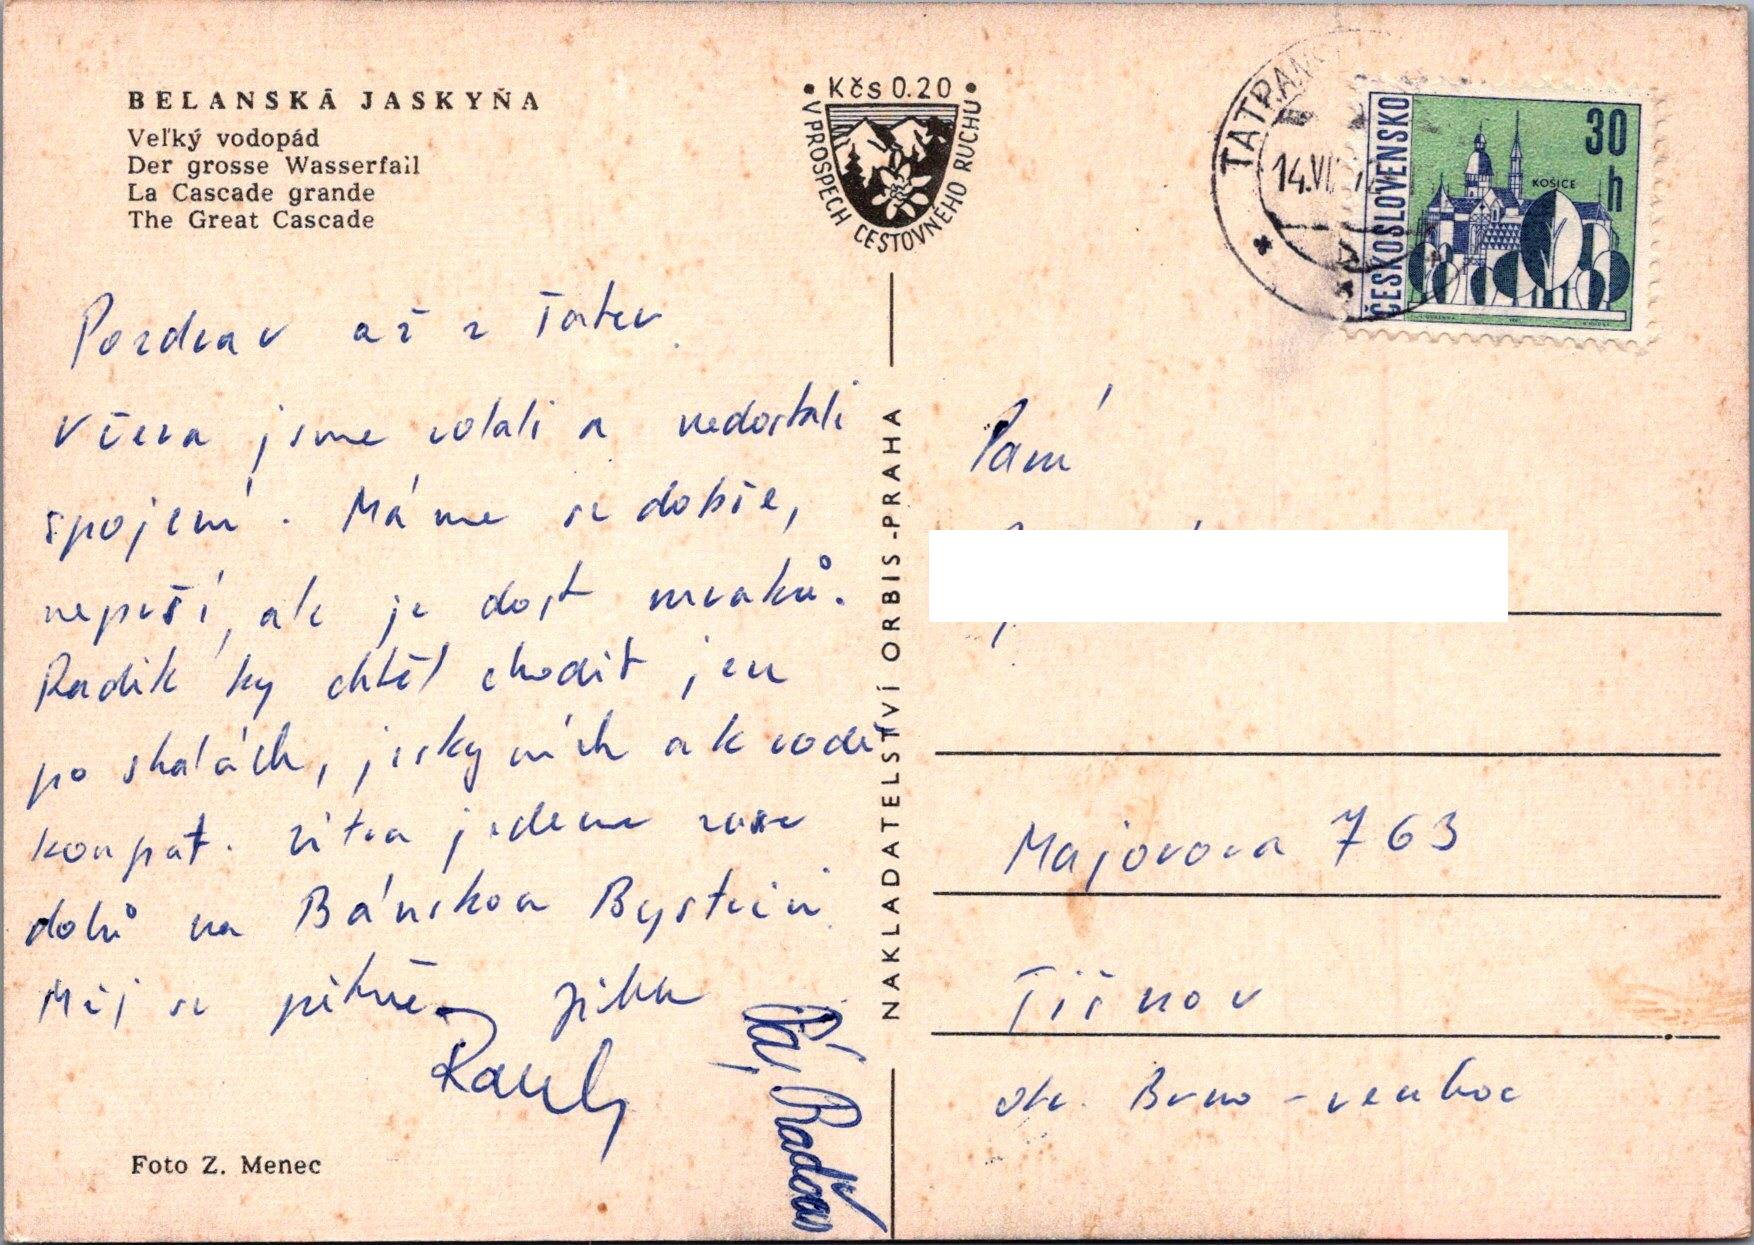 BELANSKÁ JASKYŇA
Veľký vodopád
Der grosse Wasserfall
La Cascade grande
The Great Cascade
• Kčs 0.20 •
V PROSPECH CESTOVNÉHO RUCHU
TATRANS
14.VI
ČESKOSLOVENSKO
30
h
KOŠICE
Pozdrav až z Tater.
Včera jsme volali a nedostali
spojení. Máme se dobře,
neprší, ale je dost mraků.
Radík by chtěl chodit jen
po skalách, jeskyních a k vodě
koupat. Zítra jedeme zase
dolů na Bánskou Bystrici.
Měj se pěkně
Páj Radovan
NAKLADATELSTVÍ ORBIS-PRAHA
Paní
Majorova 763
Tišnov
okr. Brno - venkov
Foto Z. Menec